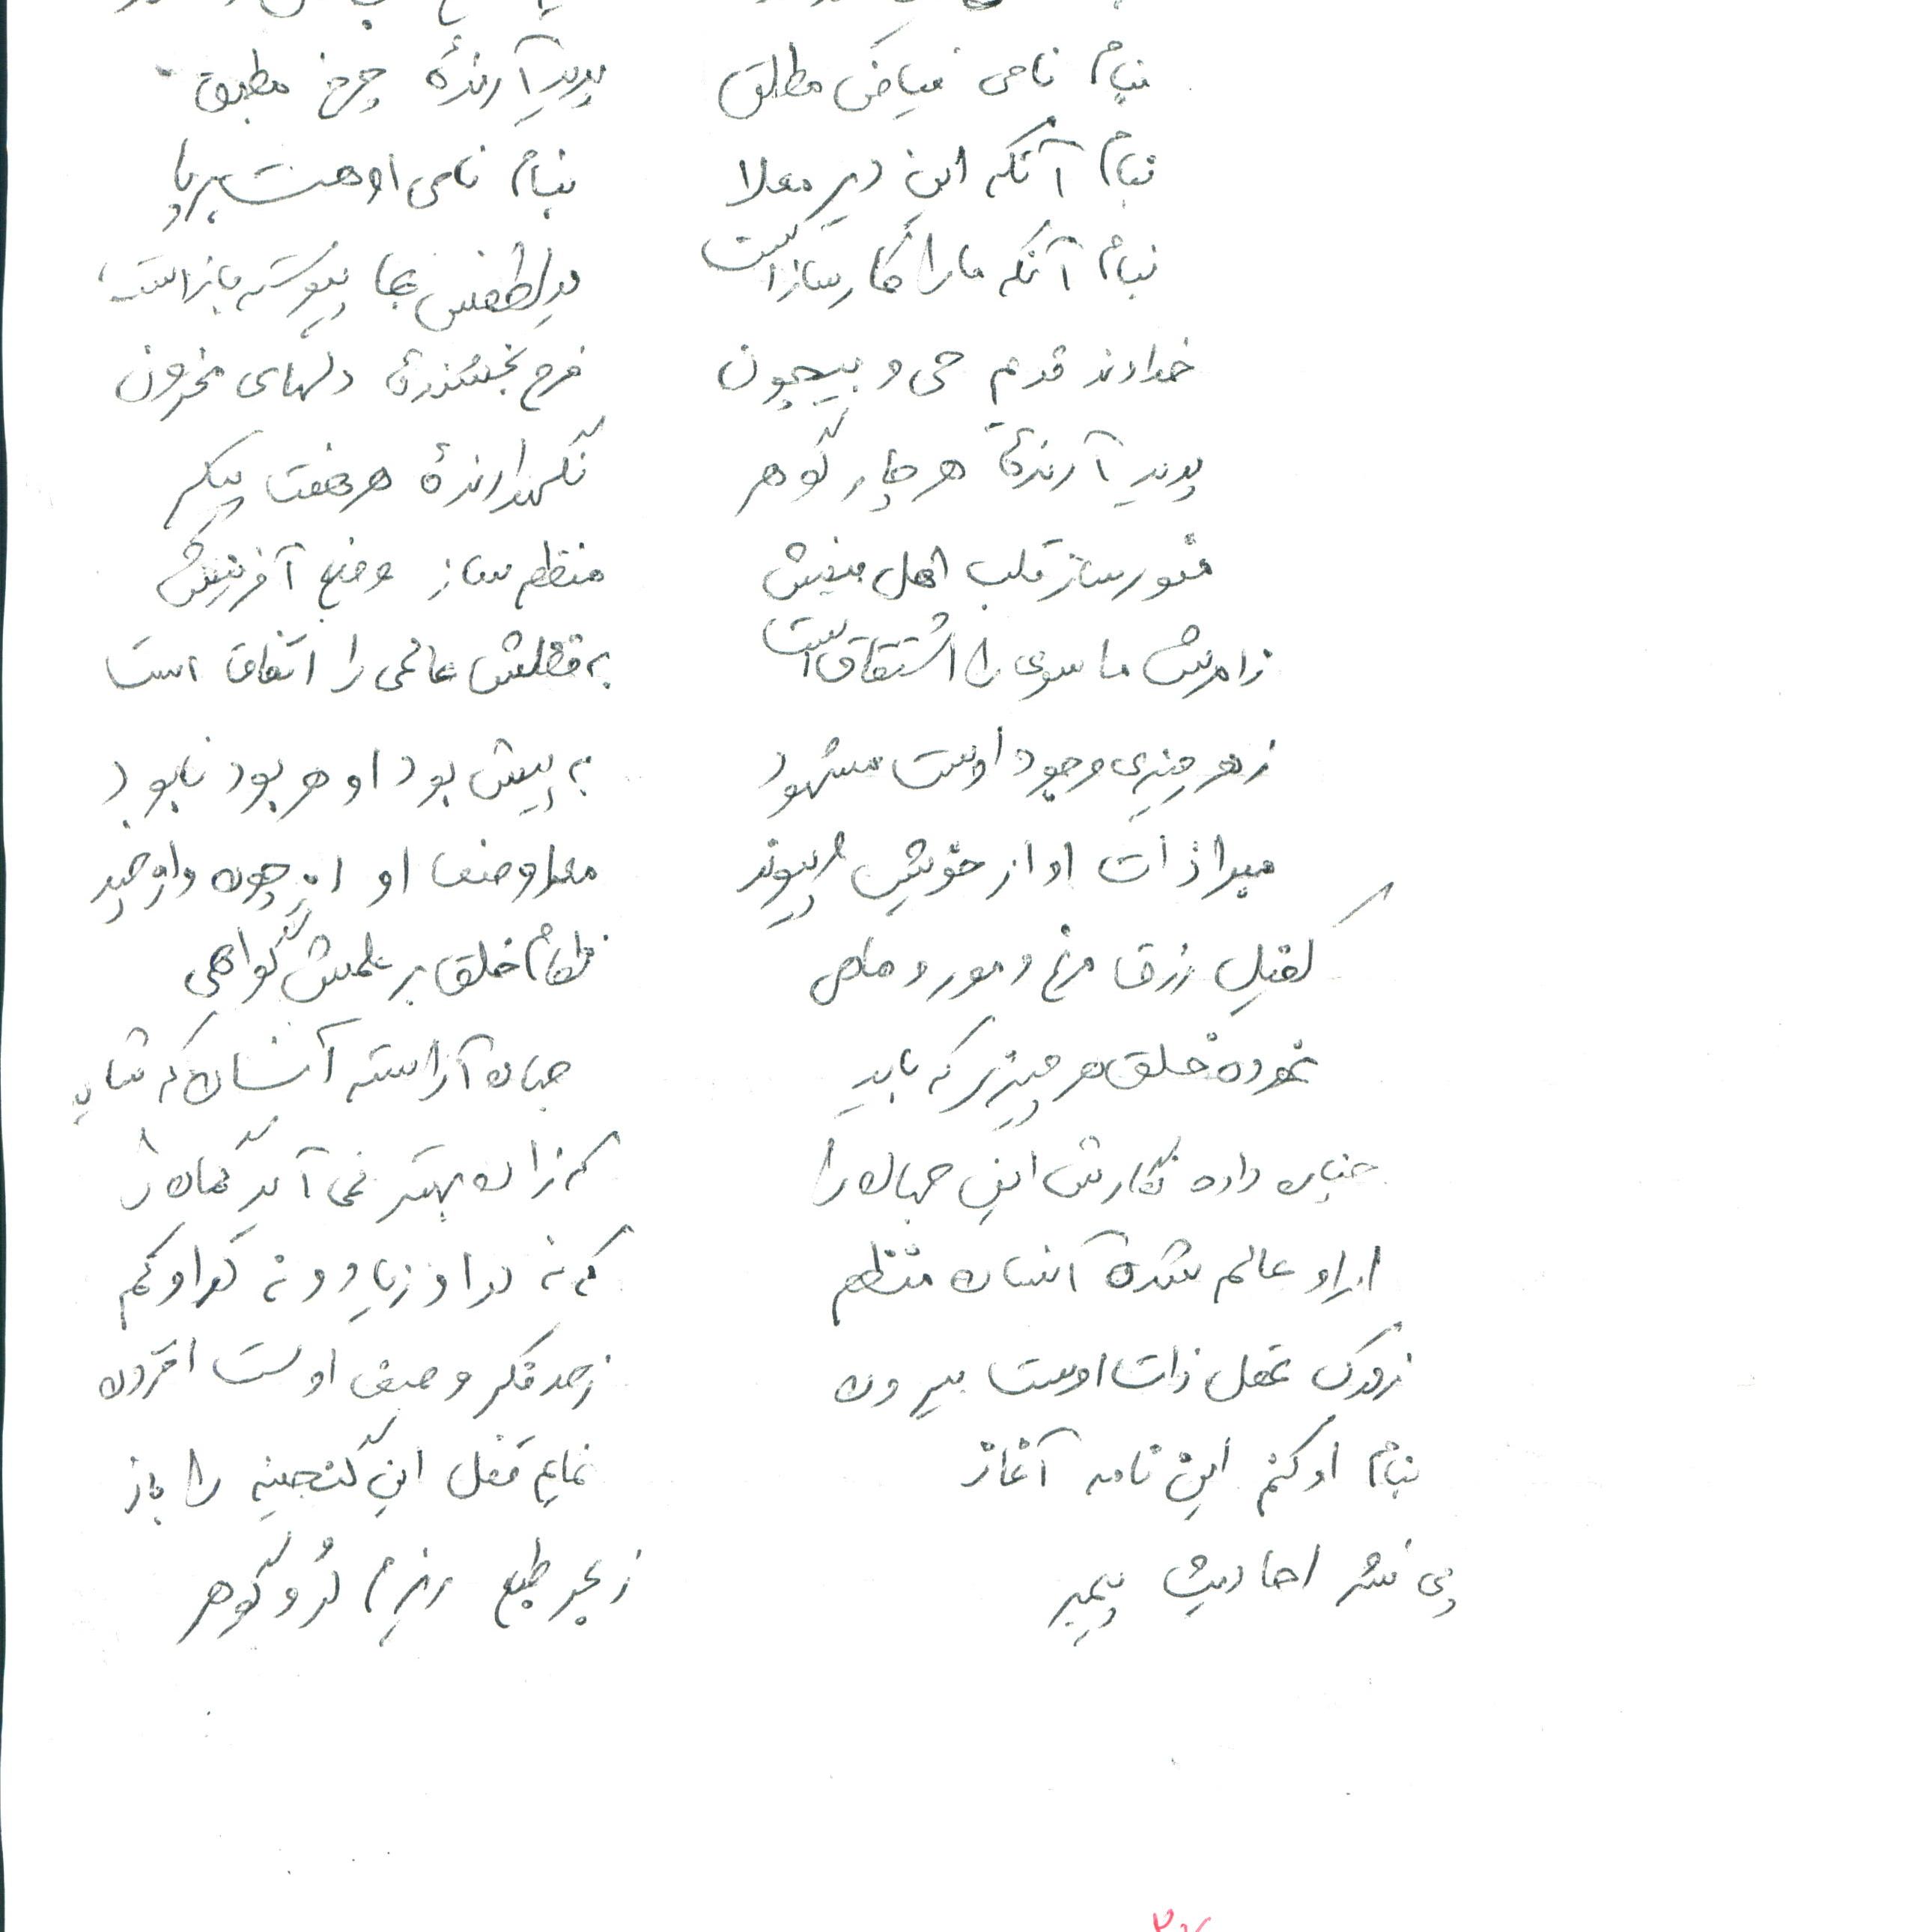 بنام نامی فیاض مطلق پدید آرندهٔ چرخ مطبق
بنام آنکه این دیر معلا بنام نامی او هست برپا
بنام آنکه ما را کارساز است در لطفش بما پیوسته باز است
خداوند قدیم حی و بیچون فرح بخشندهٔ دلهای محزون
پدید آرندهٔ هر چار گوهر نگهدارندهٔ هر هفت پیکر
منور ساز قلب اهل بینش منظم ساز وضع آفرینش
ز امرش ما سوی را اشتقاق است به فضلش عالمی را اتفاق است
ز هر چیزی وجود اوست مشهود به پیش بود او هر بود نابود
مبرا ذات او از خویش و پیوند معرا وصف او از چون و از چند
کفیل رزق مرغ و مور و ماهی نظام خلق بر علمش گواهی
نموده خلق هر چیزی که باید جهان آراسته آنسان که شاید
چنان داده نگارش این جهان را که زان بهتر نمی آید گمان را
امور عالم شده آنسان منظم که نه در او زیاد و نه در او کم
ز درک عقل ذات اوست بیرون ز حد فکر وصف اوست افزون
بنام او کنم این نامه آغاز نمایم قفل این گنجینه را باز
پی نشر احادیث پیمبر ز بحر طبع ریزم دُر و گوهر